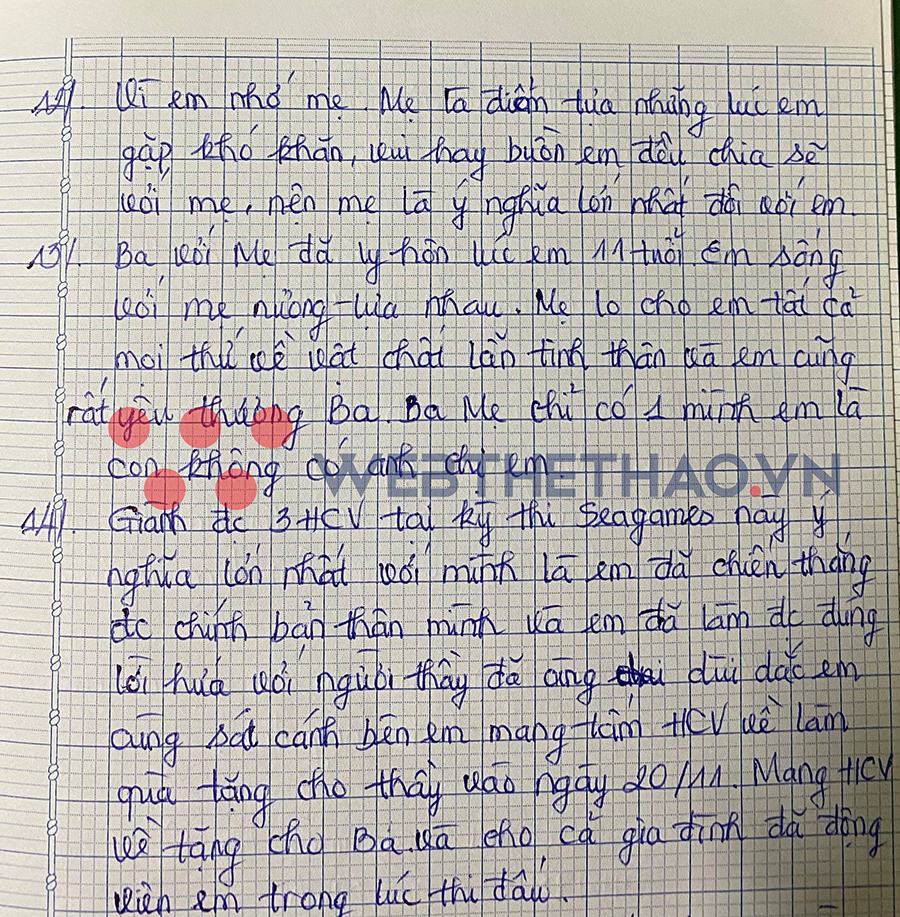 12/. Vì em nhớ mẹ. Mẹ là điểm tựa những lúc em
gặp khó khăn, vui hay buồn em đều chia sẽ
với mẹ, nên mẹ là ý nghĩa lớn nhất đối với em.
13/. Ba với Mẹ đã ly hôn lúc em 11 tuổi. Em sống
với mẹ nương tựa nhau. Mẹ lo cho em tất cả
mọi thứ về vật chất lẫn tinh thần và em cũng
rất yêu thương Ba. Ba Mẹ chỉ có 1 mình em là
con không có anh chị em
WEBTHETHAO.VN
14/. Giành đc 3 HCV tại kỳ thi Seagames này ý
nghĩa lớn nhất với mình là em đã chiến thắng
đc chính bản thân mình và em đã làm đc đúng
lời hứa với người thầy đã cùng dùi dắc em
cùng sát cánh bên em mang tấm HCV về làm
quà tặng cho thầy vào ngày 20/11. Mang HCV
về tặng cho Ba và cho cả gia đình đã động
viên em trong lúc thi đấu.